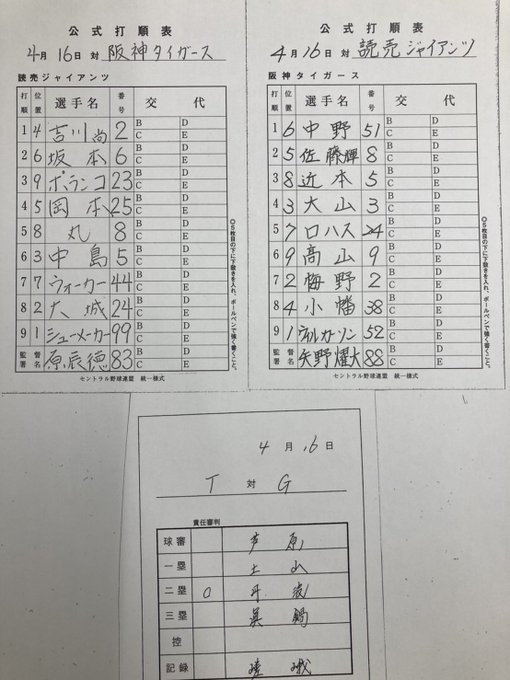 公式打順表
4月16日 対 阪神タイガース
読売ジャイアンツ
打順 位置 選手名 番号 交代
1 4 吉川尚 2 B D C E
2 6 坂本 6 B D C E
3 9 ポランコ 23 B D C E
4 5 岡本 25 B D C E
5 8 丸 8 B D C E
6 3 中島 5 B D C E
7 7 ウォーカー 44 B D C E
8 2 大城 24 B D C E
9 1 シューメーカー 99 B D C E
監督署名 原辰徳 83 B D C E
セントラル野球連盟 統一様式
○5枚目の下に下敷きを入れ、ボールペンで強く書くこと。
公式打順表
4月16日 対 読売ジャイアンツ
阪神タイガース
打順 位置 選手名 番号 交代
1 6 中野 51 B D C E
2 5 佐藤輝 8 B D C E
3 8 近本 5 B D C E
4 3 大山 3 B D C E
5 7 ロハス 24 B D C E
6 9 高山 9 B D C E
7 2 梅野 2 B D C E
8 4 小幡 38 B D C E
9 1 ウィルカーソン 52 B D C E
監督署名 矢野燿大 88 B D C E
セントラル野球連盟 統一様式
○5枚目の下に下敷きを入れ、ボールペンで強く書くこと。
4月16日
T 対 G
責任審判
球審 芦原
一塁 土山
二塁 ○ 丹波
三塁 眞鍋
控
記録